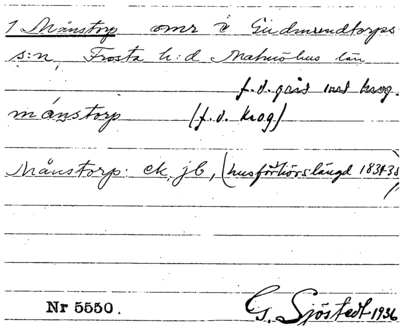 1 Månstorp omr i Gudmundtorps
s:n, Frosta h:d Malmöhus län
f.d. gård inst krog.
månstorp (f.d. krog)
Månstorp: ek, jb, (husförhörslängd 1834-38)
Nr 5550.
G. Sjöstedt 1936